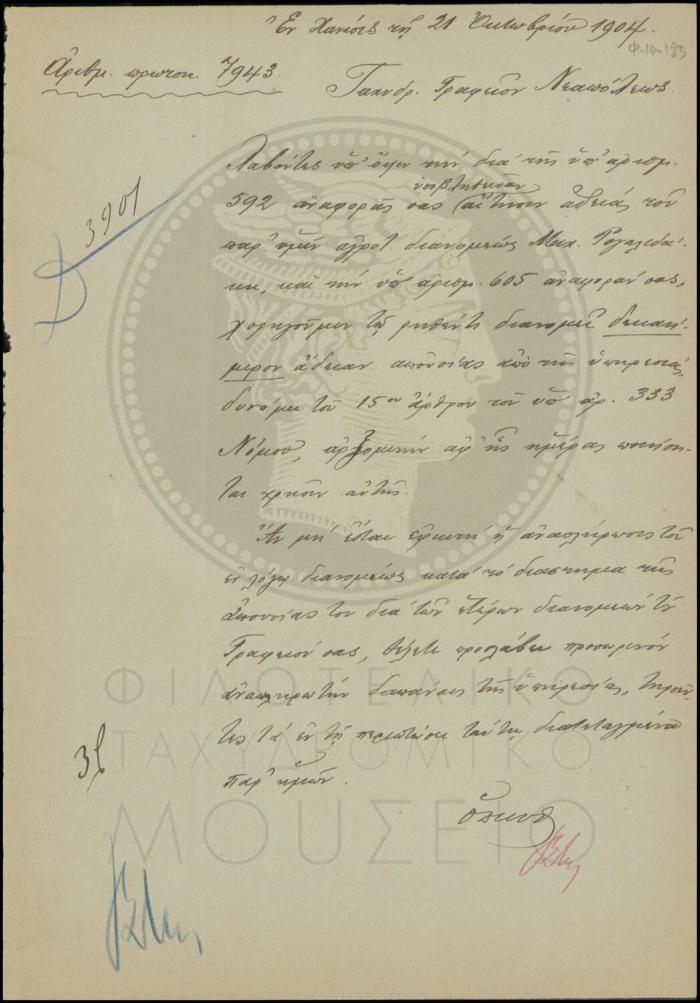 Ἐν Χανίοις τῇ 21 Ὀκτωβρίου 1904.
Φ-10-183
Ἀριθμ. πρωτοκ. 7943.
Ταχυδρ. Γραφεῖον Νεαπόλεως.
3901
Λαβόντες ὑπ' ὄψιν τὴν διὰ τῆς ὑπ' ἀριθμ.
ὑποβληθεῖσαν
592 ἀναφορᾶς σας αἴτησιν ἀδείας τοῦ
παρ' ὑμῖν ἀγροτ. διανομέως Μιχ.
κη, καὶ τὴν ὑπ' ἀριθμ. 605 ἀναφοράν σας,
χορηγοῦμεν τῷ ῥηθέντι διανομεῖ δεκαή-
μερον ἄδειαν ἀπουσίας ἀπὸ τῆς ὑπηρεσίας,
δυνάμει τοῦ 15ου ἄρθρου τοῦ ὑπ' ἀρ. 333
Νόμου, ἀρξομένην ἀφ' ἧς ἡμέρας ποιήση-
ται χρῆσιν αὐτῆς.
Ἂν μὴ ἔσται ἐφικτὴ ἡ ἀναπλήρωσις τοῦ
ἐν λόγῳ διανομέως κατὰ τὸ διάστημα τῆς
ἀπουσίας του διὰ τῶν ἑτέρων διανομέων τοῦ
Γραφείου σας, θέλετε προσλάβει προσωρινὸν
ἀναπληρωτὴν δαπάναις τῆς ὑπηρεσίας, τηροῦν-
τες τὰ ἐν τῇ περιπτώσει ταύτῃ διατεταγμένα
παρ' ἡμῶν.
ΦΙΛΟΤΕΛΙΚΟ
ΤΑΧΥΔΡΟΜΙΚΟ
ΜΟΥΣΕΙΟ